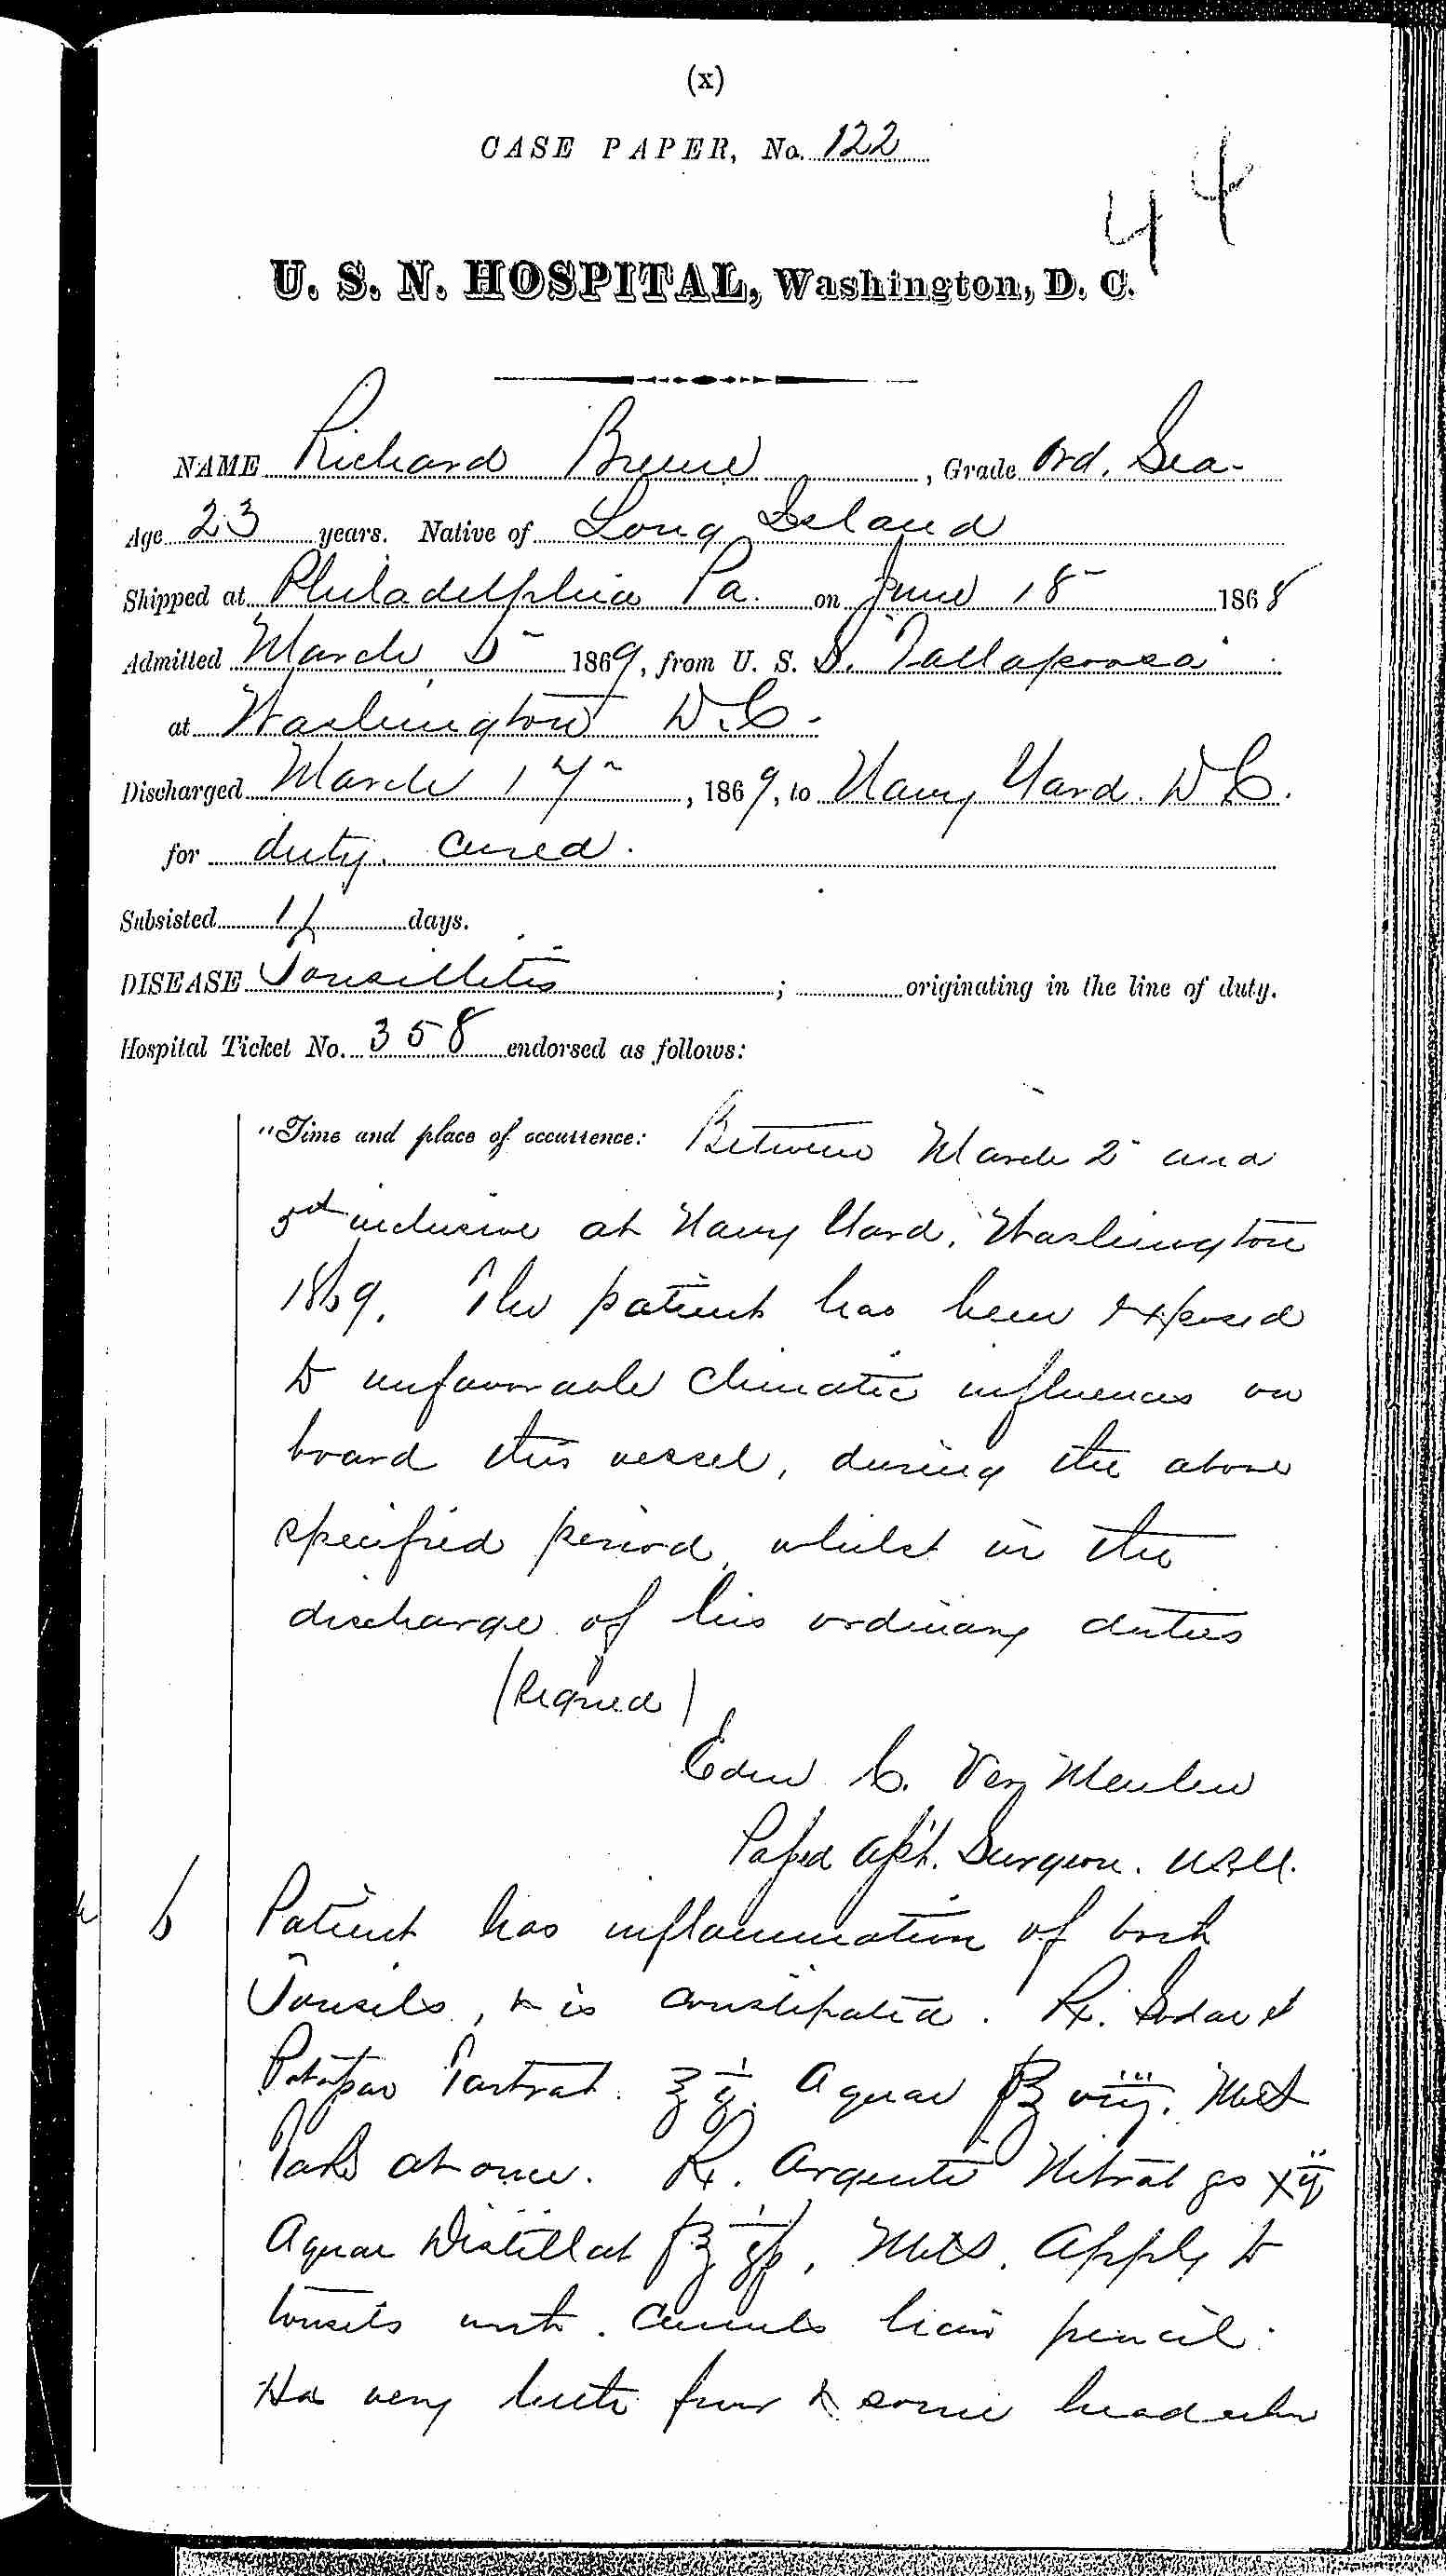 (x)
CASE PAPER, No. 122
44
U. S. N. HOSPITAL, Washington, D. C.
NAME Richard Breene, Grade Ord. Sea-
Age 23 years. Native of Long Island
Shipped at Philadelphia Pa. on June 18 1868
Admitted March 5 1869, from U. S. S. Tallapoosa
at Washington D.C.
Discharged March 17, 1869, to Navy Yard. D C.
for duty. Cured.
Subsisted days.
DISEASE Tonsillitis ; originating in the line of duty.
Hospital Ticket No. 358 endorsed as follows:
"Time and place of occurrence: Between March 2 and
5th inclusive at Navy Yard, Washington
1869. The patient has been exposed
to unfavorable climatic influences on
board this vessel, during the above
specified period, whilst in the
discharge of his ordinary duties
(Signed)
Edw C. Ver Meulen
Passed Asst. Surgeon. U.S.N.
6 Patient has inflammation of both
Tonsils, & is constipated. Rx. Sodae et
Potassae Tartrat. ʒ Aquae f℥ viij. Mist
Take at once. Rx. Argenti Nitrat grs xij
Aquae Distillat f℥ , Mist. Apply to
tonsils with Camels hair pencil.
Has very little fever & some headache